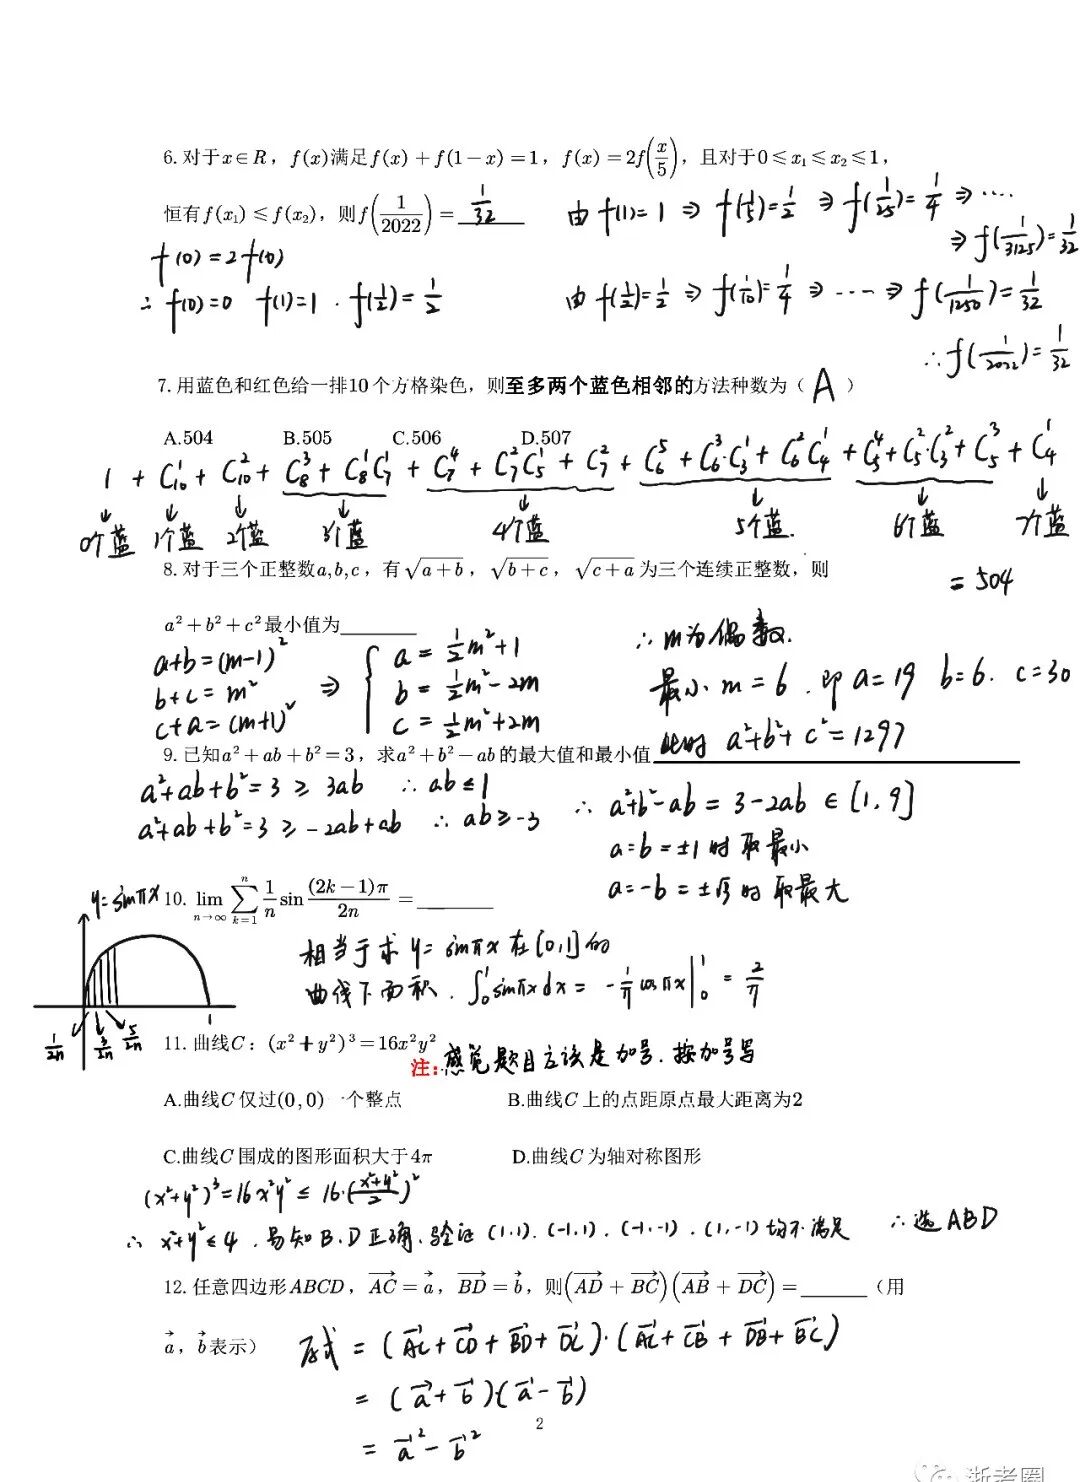 6.对于x∈R，f(x)满足f(x)+f(1−x)=1，f(x)=2f(x/5)，且对于0⩽x₁⩽x₂⩽1，
恒有f(x₁)⩽f(x₂)，则f(1/2022)=1/32
由f(1)=1⇒f(1/5)=1/2⇒f(1/25)=1/4⇒····
⇒f(1/3125)=1/32
f(0)=2f(0)
∴f(0)=0 f(1)=1．f(1/2)=1/2
由f(1/2)=1/2⇒f(1/10)=1/4⇒····⇒f(1/1250)=1/32
∴f(1/2022)=1/32
7.用蓝色和红色给一排10个方格染色，则至多两个蓝色相邻的方法种数为（A）
A.504 B.505 C.506 D.507
1+C₁₀¹+C₁₀²+C₈³+C₈¹C₇¹+C₇⁴+C₇²C₅¹+C₇²+C₆⁵+C₆³·C₃¹+C₆²C₄¹+C₅⁴+C₅²·C₃²+C₅³+C₄¹
0个蓝 1个蓝 2个蓝 3个蓝 4个蓝 5个蓝. 6个蓝 7个蓝
=504
8.对于三个正整数a,b,c，有√(a+b)，√(b+c)，√(c+a)为三个连续正整数，则
a²+b²+c²最小值为______
a+b=(m-1)²
b+c=m²
c+a=(m+1)²
⇒{a=½m²+1
b=½m²-2m
c=½m²+2m
∴m为偶数.
最小m=6．即a=19 b=6. c=30
此时a²+b²+c²=1297
9.已知a²+ab+b²=3，求a²+b²−ab的最大值和最小值______
a²+ab+b²=3≥3ab ∴ab≤1
a²+ab+b²=3≥-2ab+ab ∴ab≥-3
∴a²+b²-ab=3-2ab∈[1,9]
a=b=±1时取最小
a=-b=±√3时取最大
10. lim n→∞ ∑ k=1 n 1/n sin (2k−1)π/2n =______
y=sinπx
1/2n 3/2n 5/2n 1
相当于求y=sinπx在[0,1]的
曲线下面积．∫₀¹sinπxdx=-1/π cosπx|₀¹=2/π
11.曲线C：(x²+y²)³=16x²y²
注：感觉题目应该是加号．按加号写
A.曲线C仅过(0,0)一个整点 B.曲线C上的点距原点最大距离为2
C.曲线C围成的图形面积大于4π D.曲线C为轴对称图形
(x²+y²)³=16x²y²≤16·((x²+y²)/2)²
∴x²+y²≤4．易知B、D正确、验证(1,1).(-1,1).(-1,-1).(1,-1)均不满足 ∴选ABD
12.任意四边形ABCD，AC→=a→，BD→=b→，则(AD→+BC→)(AB→+DC→)=______（用
a→，b→表示）
原式=(AC→+CD→+BD→+DC→)·(AC→+CB→+DB→+BC→)
=(a→+b→)(a→-b→)
=a→²-b→²
2
浙考圈